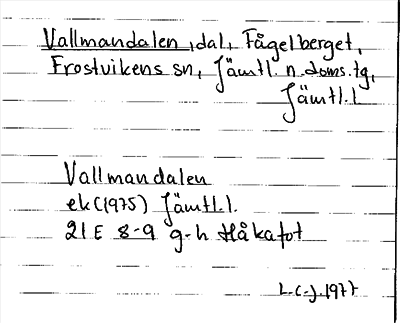 Vallmandalen, dal, Fågelberget,
Frostvikens sn, Jämtl. n. doms.tg,
Jämtl. l
Vallmandalen
ek (1975) Jämtl.l.
21 E 8-9 g-h Håkafot
L.C-J. 1977